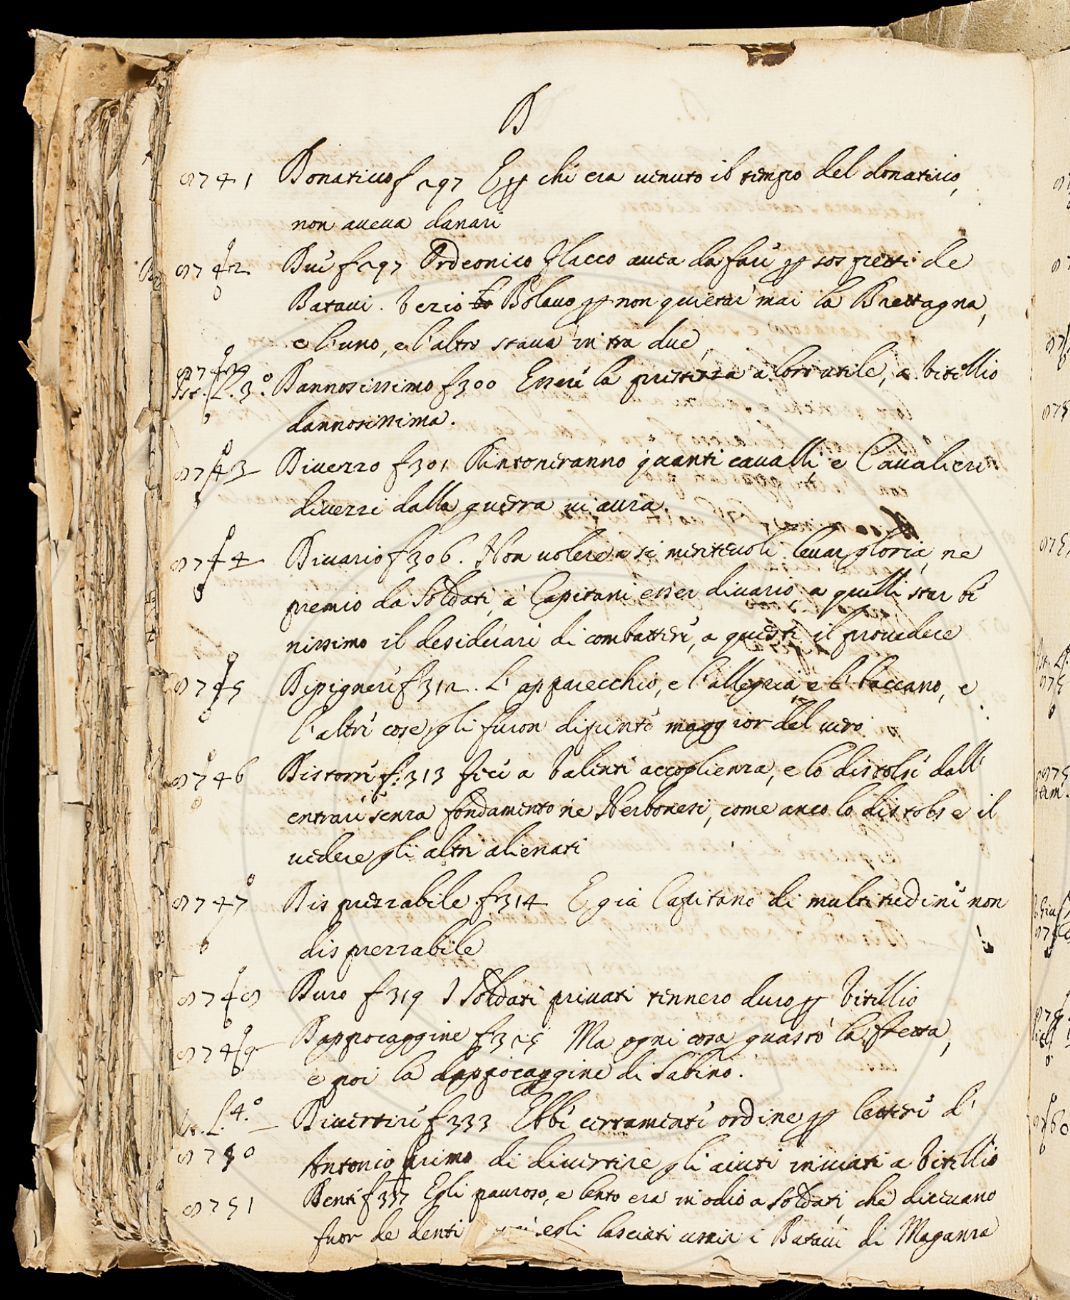 D
8741 Donativo f 297 Essi chi era venuto il tempo del donativo,
non aveva danari
8742 Dui f 297 Ordeonico Flacco avea da fare per sospetti de
Batavi. Vezio Bolano per non quietar mai la Brettagna,
e l'uno, e l'altro stava in tra due,
St. L. 3.o Dannosissimo f 300 Esser la prestezza a loro utile, a Vitellio
dannosissima.
8743 Diverso f 301 Rintoneranno quanti cavalli, e Cavalieri
diversi dalla guerra vi avrà.
8744 Divario f 306. Non volere a si meritevoli levar gloria, ne
premio da Soldati, a Capitani esser divario, a quelli star be
nissimo il desiderare di combattere, a questi il provedere
8745 Dipignere f 312. L'apparecchio, e l'allegria, e 'l baccano, e
l'altre cose gli furon dipinte maggior del vero
8746 Distorre f. 313 Fece a Valente accoglienza, e lo distolse dall'
entrare senza fondamento ne Nerbonesi, come anco lo distolse il
vedere gli altri alienati
8747 Disprezzabile f 314 E già Capitano di moltitudine non
disprezzabile
8748 Duro f 319 I Soldati privati tennero duro per Vitellio
8749 Dappocaggine f 325 Ma ogni cosa guastò la fretta,
e poi la dappocaggine di Sabino.
St. L. 4.o Divertire f 333 Ebbe certamente ordine per lettere d'
8750 Antonio primo di divertire gli aiuti inviati a Vitellio
8751 Denti f 337 Egli pauroso, e lento era in odio a Soldati che dicevano
fuor de denti egli lasciati uscir i Batavi di Maganza